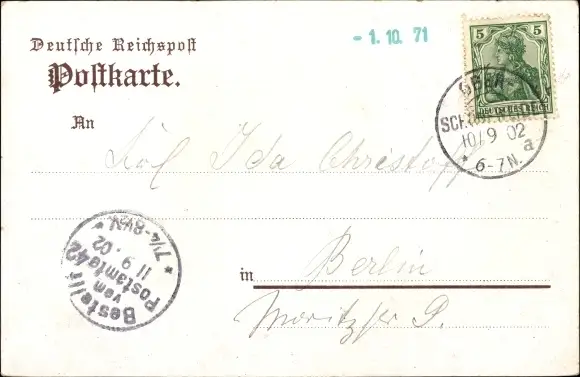 Deutsche Reichspost
Postkarte.
- 1. 10. 71
5 5
DEUTSCHES REICH
OBER-
SCH
10/9 02
a
* 6-7N.
An
Ida Christoff
Bestellt
vom
Postamte 42
11 9. 02
* 7¼-8½V *
in Berlin
Moritzstr 9.